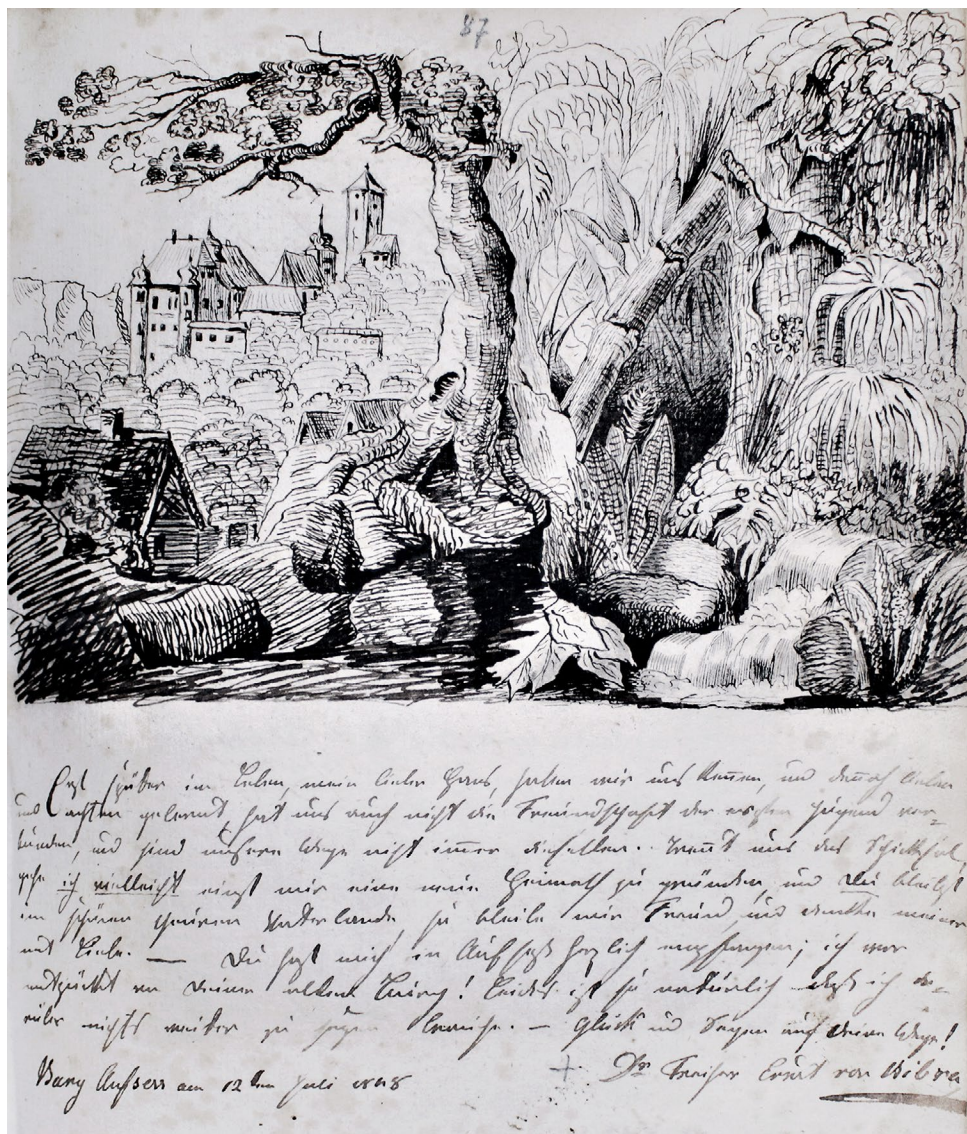 87
Erst später im Leben, mein lieber Hans, haben wir uns kennen, und dennoch lieben
und achten gelernt, hat uns auch nicht die Freundschaft der ersten Jugend ver-
bunden, und sind unsere Wege nicht immer dieselben. Trennt uns das Schicksal,
gehe ich vielleicht einst mir eine neue Heimath zu gründen, und Du bleibst
im schönen theuren Vaterlande, so bleibe mir Freund und denke meiner
mit Liebe. — Du hast mich in Aufseß herzlich empfangen; ich war
entzückt von Deiner alten Burg! Beides ist so natürlich daß ich da-
rüber nichts weiter zu sagen brauche. — Glück und Segen auf Deine Wege!
Burg Aufsess am 12ten Juli
Dr. Freiherr Ernst von Bibra